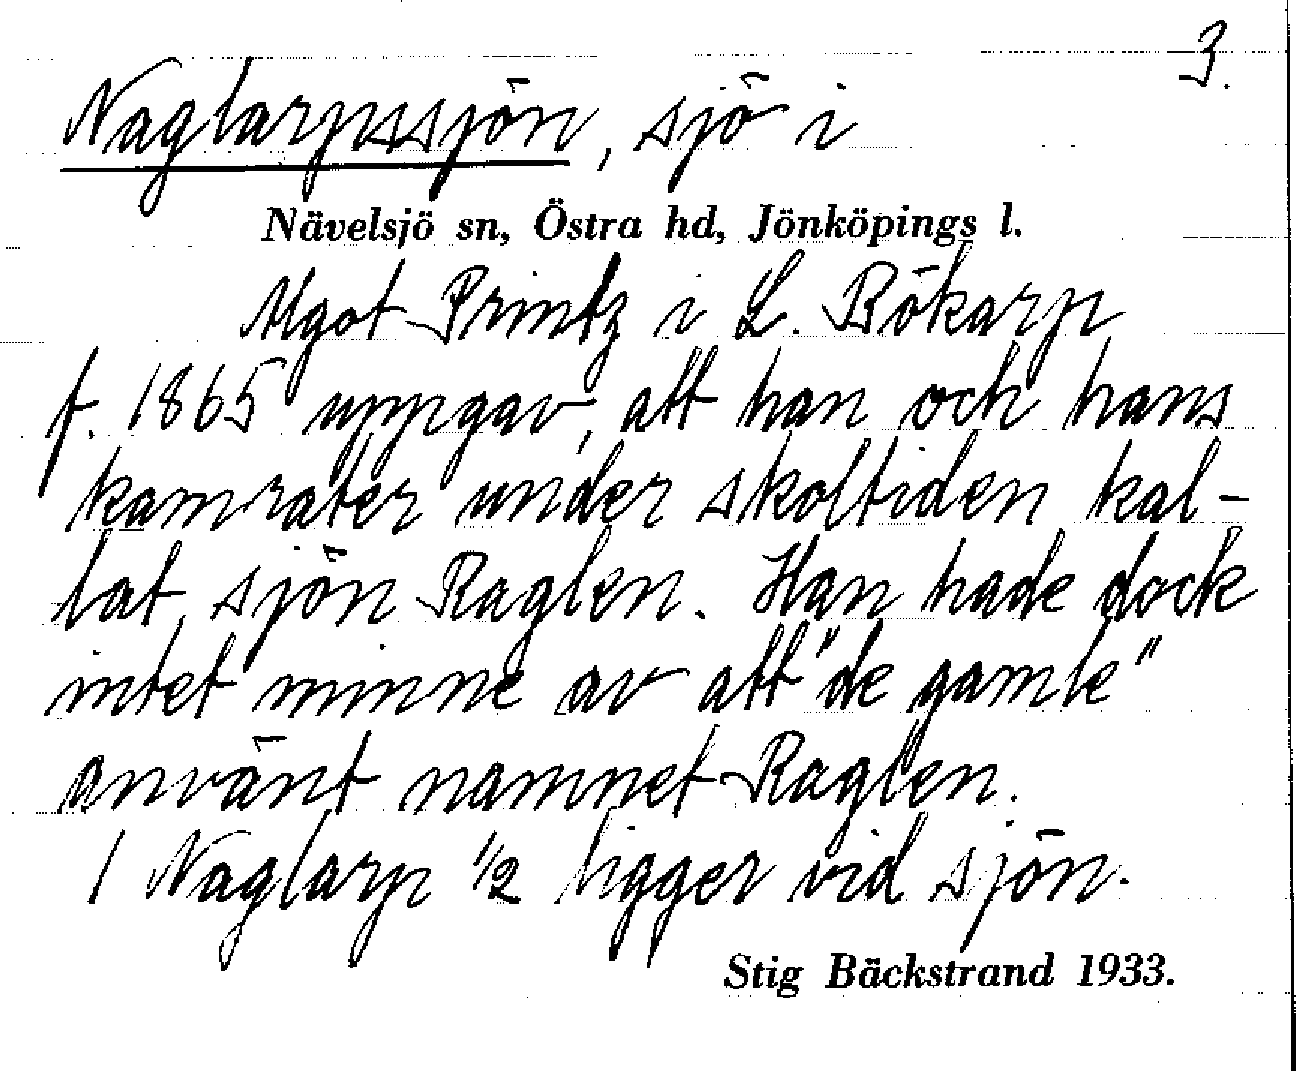 3.
Naglarpssjön, sjö i
Nävelsjö sn, Östra hd, Jönköpings l.
Algot Printz i L. Bökarp
f. 1865 uppgav, att han och hans
kamrater under skoltiden kal-
lat sjön Raglen. Han hade dock
intet minne av att "de gamle"
använt namnet Raglen.
1 Naglarp 1/2 ligger vid sjön.
Stig Bäckstrand 1933.